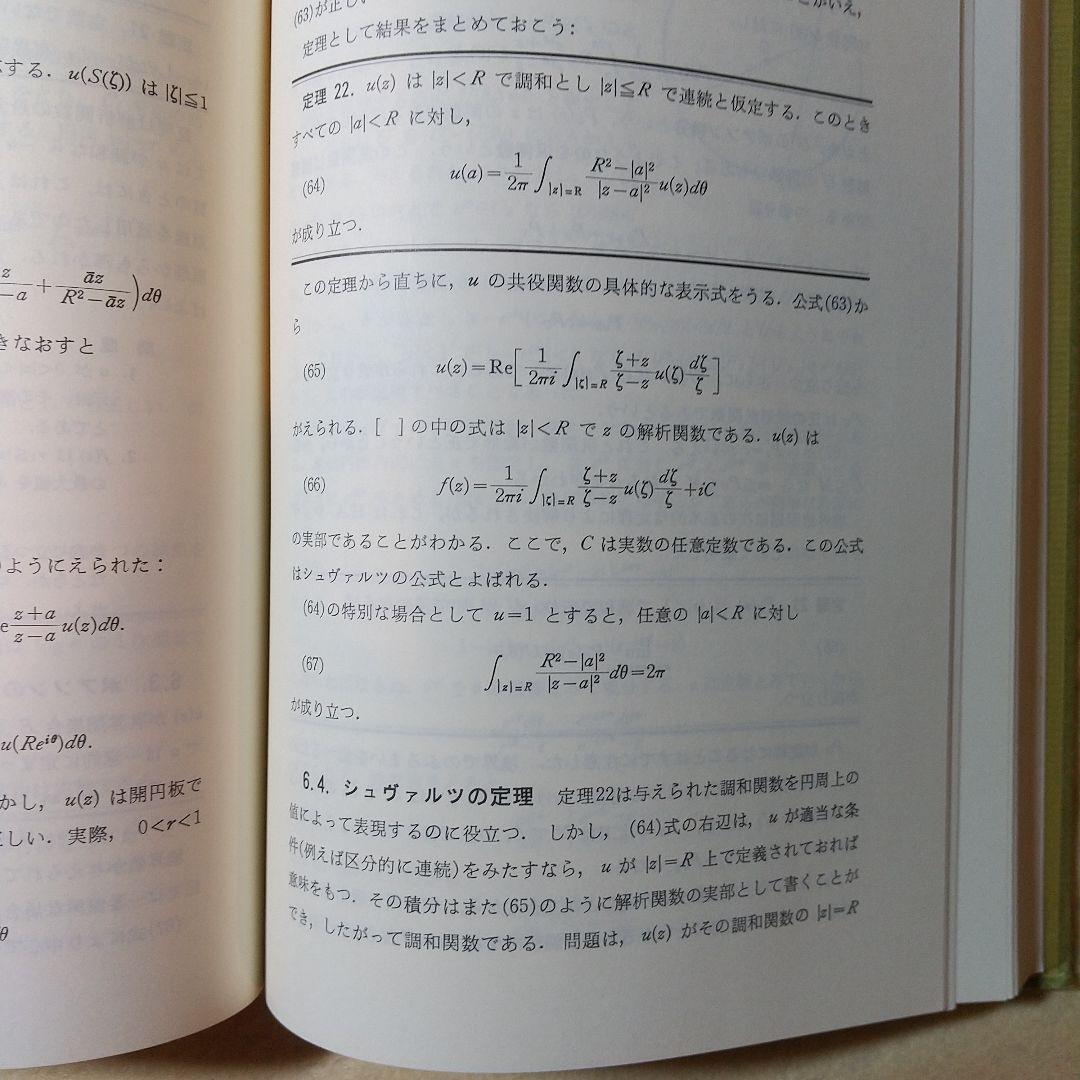 応する. u(S(ζ)) は |ζ|≦1
z/−a + āz/(R²−āz))dθ
きなおすと
のようにえられた:
e (z+a)/(z−a) u(z)dθ.
u(Re^{iθ})dθ.
かし, u(z) は開円板で
正しい. 実際, 0<r<1
θ
(63)が正し
定理として結果をまとめておこう:
定理 22. u(z) は |z|<R で調和とし |z|≦R で連続と仮定する. このとき
すべての |a|<R に対し,
(64) u(a)=1/2π ∫_{|z|=R} (R²−|a|²)/|z−a|² u(z)dθ
が成り立つ.
この定理から直ちに, u の共役関数の具体的な表示式をうる. 公式(63)か
ら
(65) u(z)=Re[1/2πi ∫_{|ζ|=R} (ζ+z)/(ζ−z) u(ζ) dζ/ζ]
がえられる. [ ] の中の式は |z|<R で z の解析関数である. u(z) は
(66) f(z)=1/2πi ∫_{|ζ|=R} (ζ+z)/(ζ−z) u(ζ) dζ/ζ +iC
の実部であることがわかる. ここで, C は実数の任意定数である. この公式
はシュヴァルツの公式とよばれる.
(64)の特別な場合として u=1 とすると, 任意の |a|<R に対し
(67) ∫_{|z|=R} (R²−|a|²)/|z−a|² dθ=2π
が成り立つ.
6.4. シュヴァルツの定理 定理22は与えられた調和関数を円周上の
値によって表現するのに役立つ. しかし, (64)式の右辺は, u が適当な条
件(例えば区分的に連続)をみたすなら, u が |z|=R 上で定義されておれば
意味をもつ. その積分はまた(65)のように解析関数の実部として書くことが
でき, したがって調和関数である. 問題は, u(z) がその調和関数の |z|=R